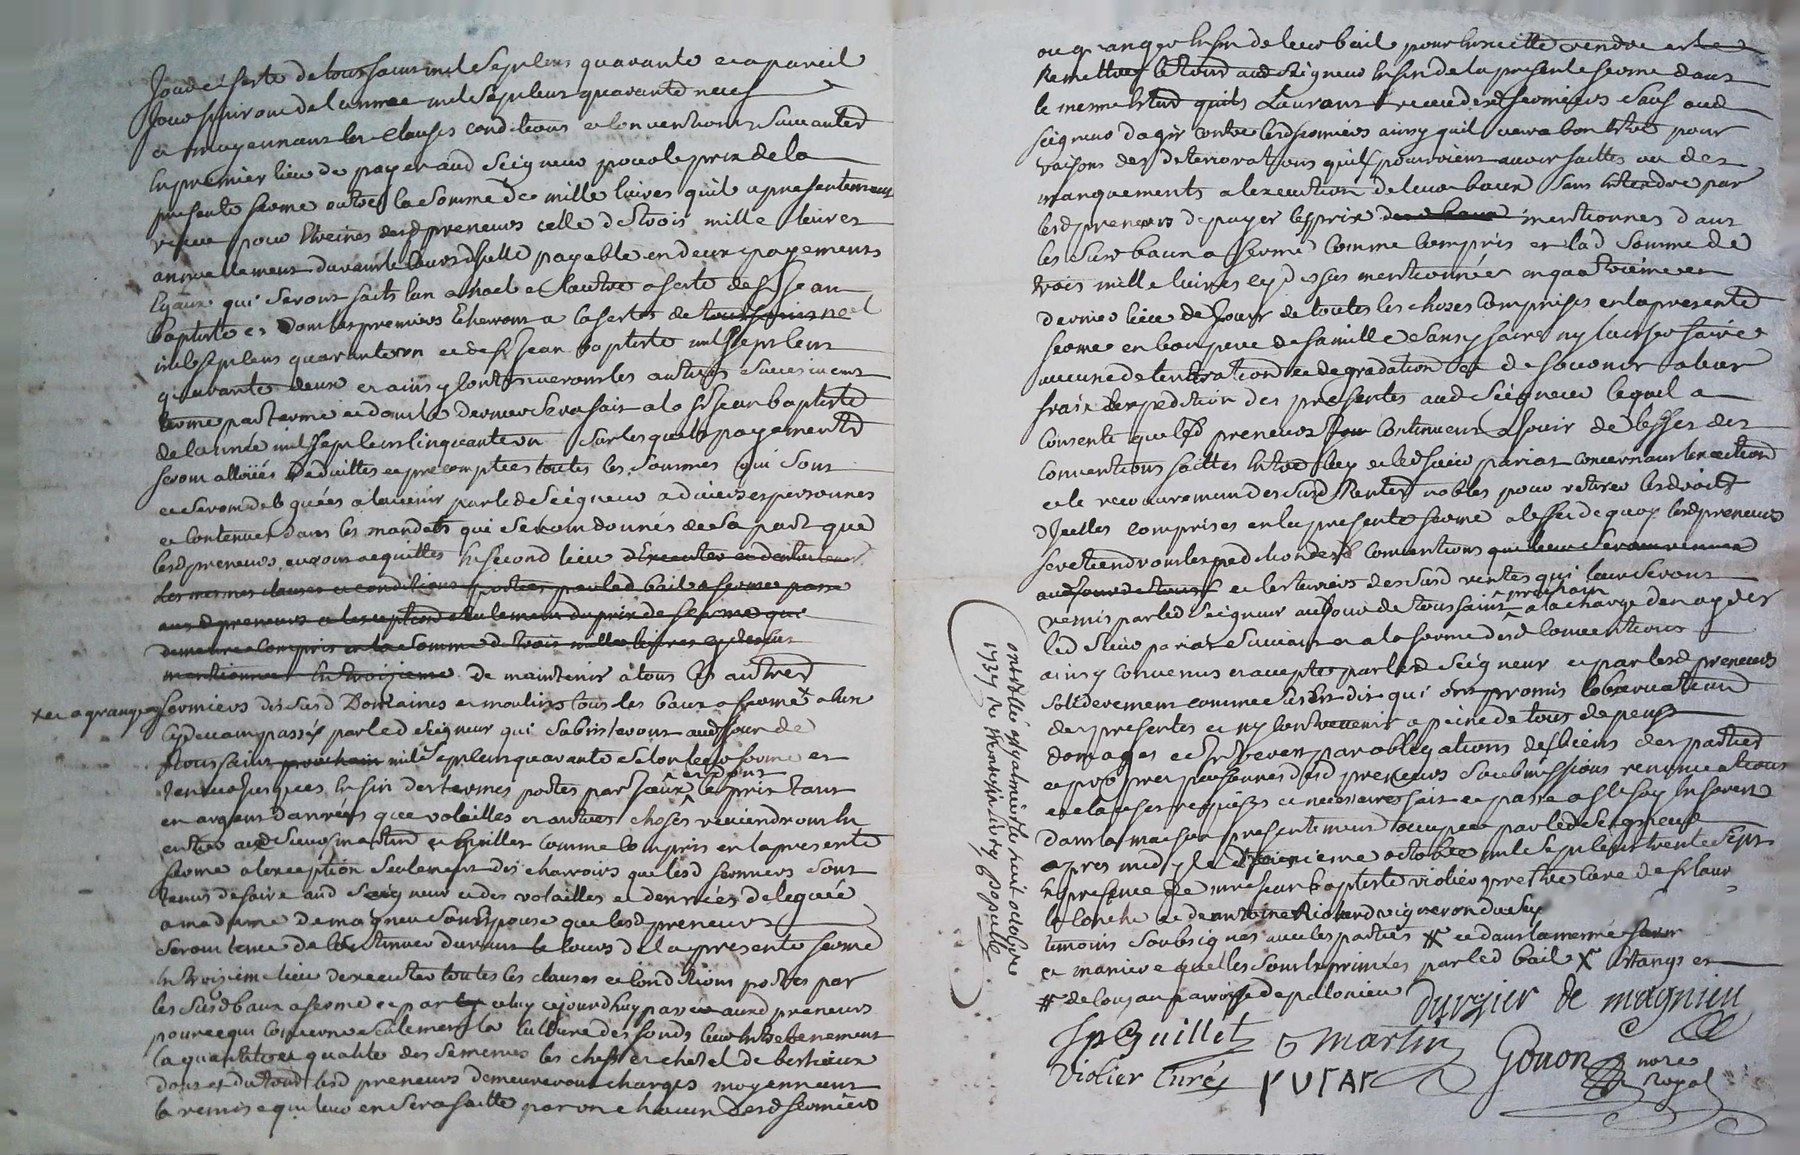 Jour et feste de toussaint mil sept cens quarante et a pareil
jour finiront de l'année mil sept cens quarante neuf
et moyennant les clauses conditions et conventions suivantes
en premier lieu de payer aud Seigneur pour le prix de la
presente ferme outre la somme de mille livres quil a presentement
receue pour Etreines desd preneurs celle de trois mille livres
annuellement durant le cours dicelle payable en deux payements
Egaux qui seront faits l'un a noel et l'autre a feste de St Jean
Baptiste et dont les premiers Echerront a la feste de toussaints noel
mil sept cens quarante un et de St Jean Baptiste mil sept cens
quarante deux et ainsy continueront les autres
terme par terme et dont le dernier sera fait a la St Jean Baptiste
de l'année mil sept cens cinquante un sur lesquels payements
seront alloüés deduittes et precomptées toutes les sommes qui sont
et seront deleguées a l'avenir par led Seigneur a diverses personnes
et contenues dans les mandats qui seront donnés de sa part que
lesd preneurs auront acquittés En second lieu d'Executer et d'entretenir
les mesmes clauses et conditions portées par led bail a ferme passé
aux d preneurs a l'exception seulement du prix de ferme qui
demeure compris en la somme de trois mille livres cy dessus
mentionnée En troisieme de maintenir a tous les autres
x et a grangers
fermiers des susd Domaines et moulins tous les baux a ferme x a eux
cydevant passés par led Seigneur qui subsisteront aud jour de
toussaint prochain mil sept cens quarante selon leur forme et
teneur jusques en fin des termes portés par iceux et dont le prix tant
en argent danrées que volailles et autres choses reviendront en
entier aud sieurs martin et Guillet comme compris en la presente
ferme a l'exception seulement des charrois que lesd fermiers sont
tenus de faire aud Seigneur et des volailles et denrées deleguée
a madame de magnieu son Epouse que lesd preneurs
seront tenus de continuer durant le cours de la presente ferme
En troisieme lieu d'executer toutes les clauses et conditions portées par
les susd baux a ferme et par celuy cejourd'huy passé aux d preneurs
pour ce qui concerne seulement la culture des fonds leur entretenement
la quantité et qualité des semences les chef et chetel de bestiaux
dont et du tout lesd preneurs demeureront chargés moyennant
la remise qui leur en sera faitte par un chacun desd fermiers
ou grangers En fin de leur bail pour ensuitte rendre et le
Remettre le tout aud Seigneur En fin de la presente ferme dans
le mesme Etat quils L'auront receu desd fermiers sauf aud
Seigneur d'agir contre lesd fermiers ainsy quil verra bon Etre pour
raisons des deteriorations quils pourroient avoir faittes ou des
manquements a l'execution de leur baux sans Entendre par
lesd preneurs de payer les prix de ce baux mentionnés dans
les susd baux a ferme comme compris en lad somme de
trois mille livres cy dessus mentionnée en quatrieme et
dernier lieu de Jouir de toutes les choses comprises en la presente
ferme en bon pere de famille sans y faire ny laisser faire
aucune deterioration ne degradation et de fournir a leur
frais d'expedition des presentes aud Seigneur lequel a
consenti que lesd preneurs continuent a Jouir de l'effet des
conventions faittes entre luy et led sieur pariat concernant l'exaction
et le recouvrement des susd Rentes nobles pour retirer les droits
d'Icelles comprises en la presente ferme a l'effet de quoy lesd preneurs
se retiendront l'expedition desd conventions qui leur seront remises
aud jour de touss et les terriers des susd rentes qui leur seront
remis par led Seigneur au Jour de toussaint prochain a la charge d'en ayder
led sieur pariat suivant et a la forme desd conventions
ainsy convenus et accepté par led Seigneur et par lesd preneurs
solidairement comme dit est qui ont promis l'observation
des presentes et ny contrevenir a peine de tous depens
domages et interets par obligations des biens des parties
et propres personnes desd preneurs soubmissions renonciations
et clauses requises et necessaires fait et passé a St Foy En forest
dans la maison presentement occupée par led Seigneur
apres midy le troisieme octobre mil sept cens trente sept
En presence de mre Jean baptiste violier pretre curé de St Laur
la Conche et de antoine Richard vigneron dud
temoins soubsignés avec les parties # et dans la mesme
et maniere quelles sont exprimées par led bail x Etangs et
# de Cuzau parroisse de polonieu
Durgier de magnieu
Jp Guillet G Martin
Gonon nore
Royal
Violier Curé
controllé et a montbrison le huit octobre
1737